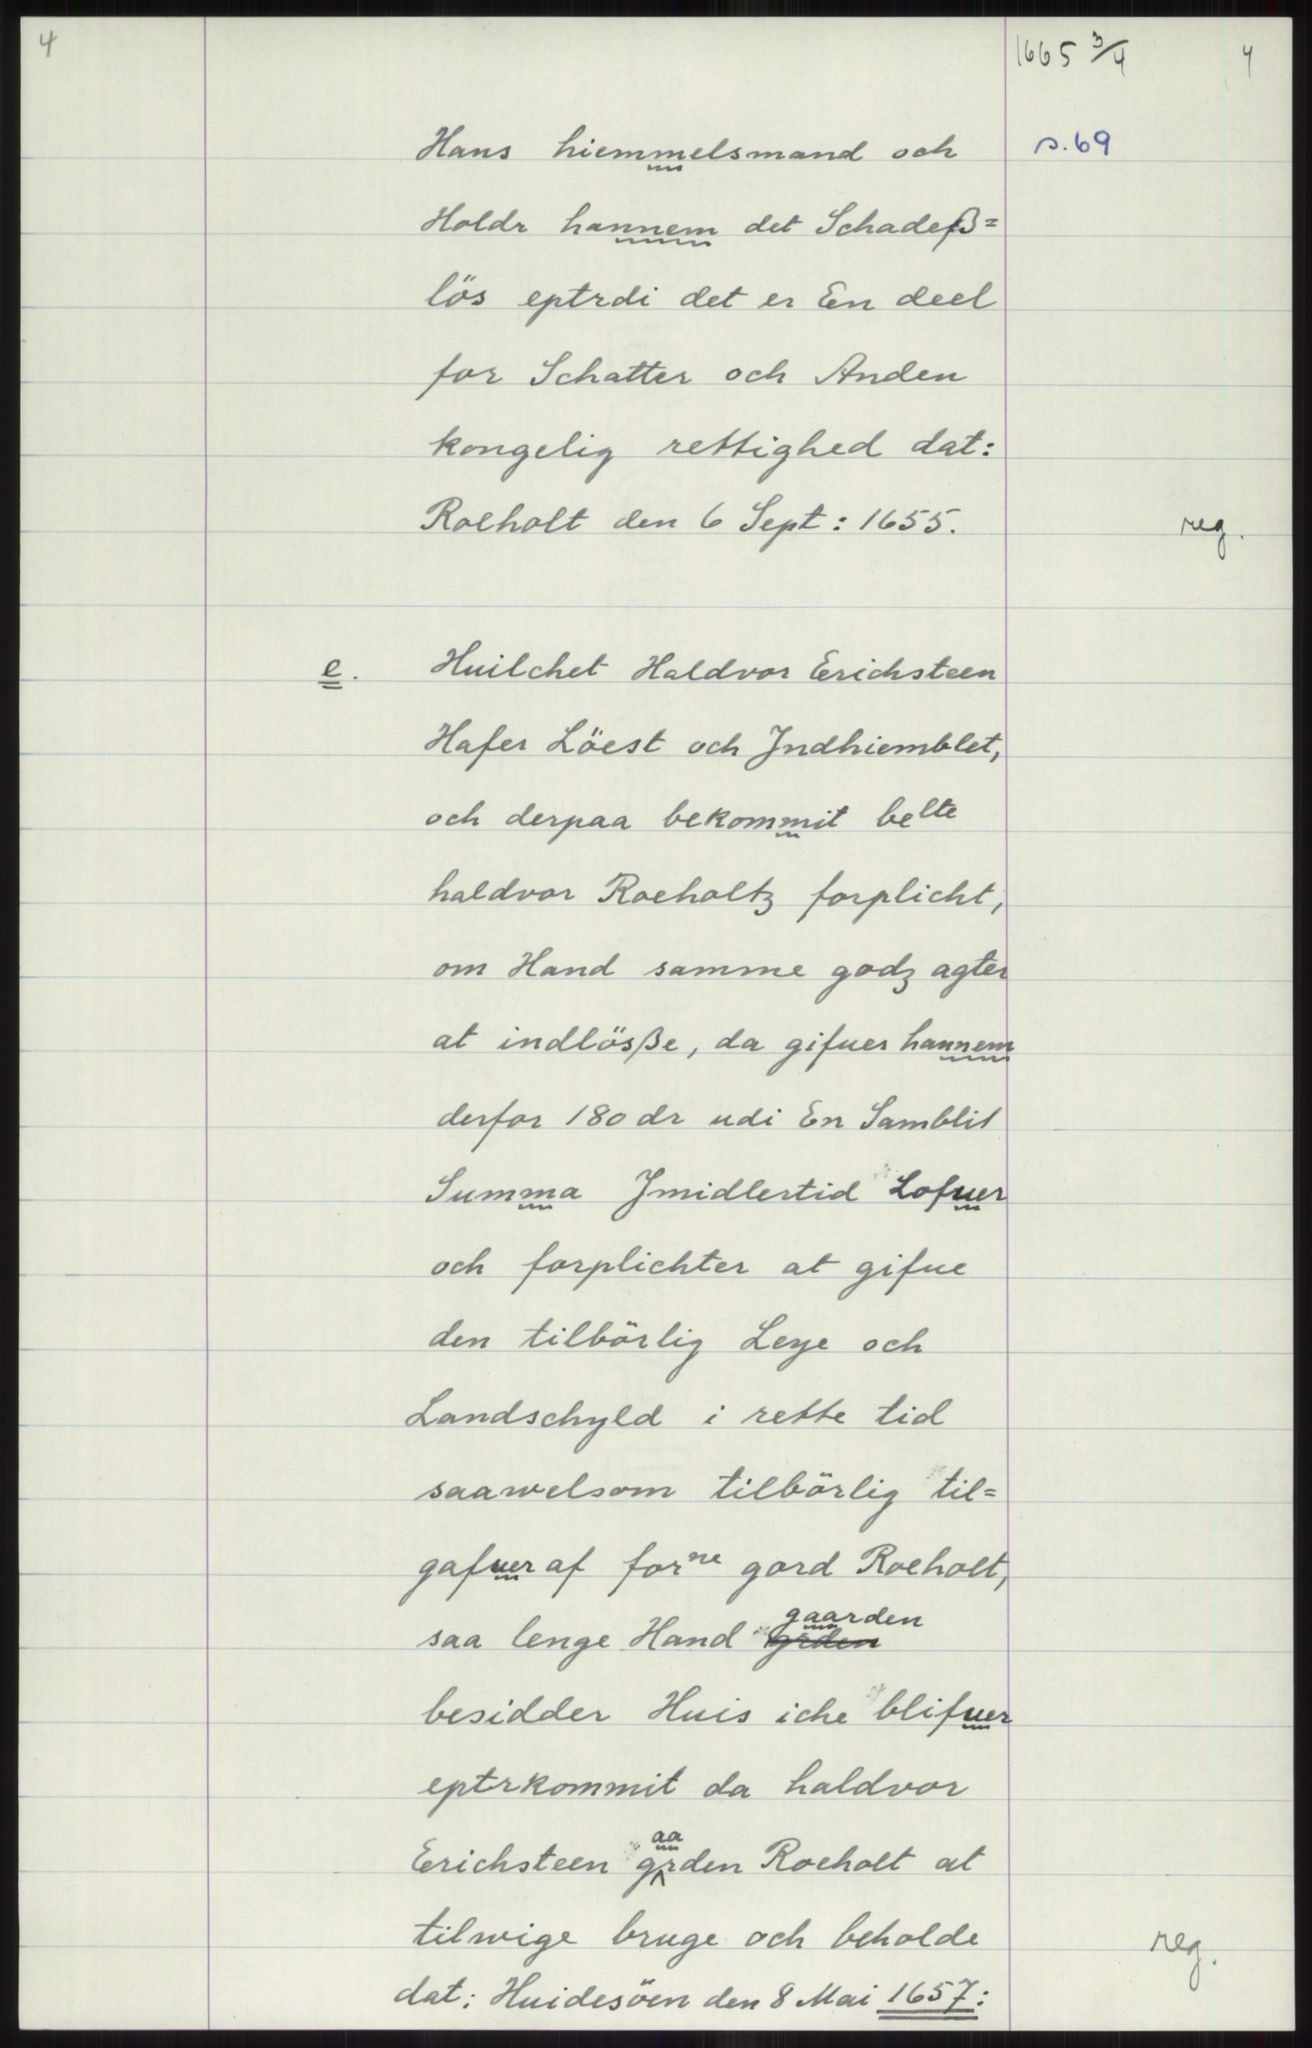 4
1665 3/4
4
Hans hiemmelsmand och
s. 69
Holdr hannem det Schadeß=
lös eptrdi det er En deel
for Schatter och Anden
kongelig rettighed dat:
Roeholt den 6 Sept: 1655.
reg.
e. Huilchet Haldvor Erichsteen
Hafer Löest och Jndhiemblet,
och derpaa bekommit belte
haldvor Roeholtz forplicht,
om Hand samme godz agter
at indlösße, da gifuer hannem
derfor 180 dr udi En Samblit
Summa Jmidlertid Lofuer
och forplichter at gifue
den tilbörlig Leye och
Landschyld i rette tid
saawelsom tilbörlig til=
gafuer af forne gord Roeholt,
gaarden
saa lenge Hand grden
besidder Huis iche blifuer
eptrkommit da haldvor
aa
Erichsteen grden Roeholt at
tilwige bruge och beholde
reg.
dat: Huidesöen den 8 Mai 1657: